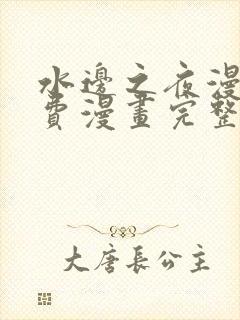 水邊之夜漫
費漫畫完整
大唐長公主